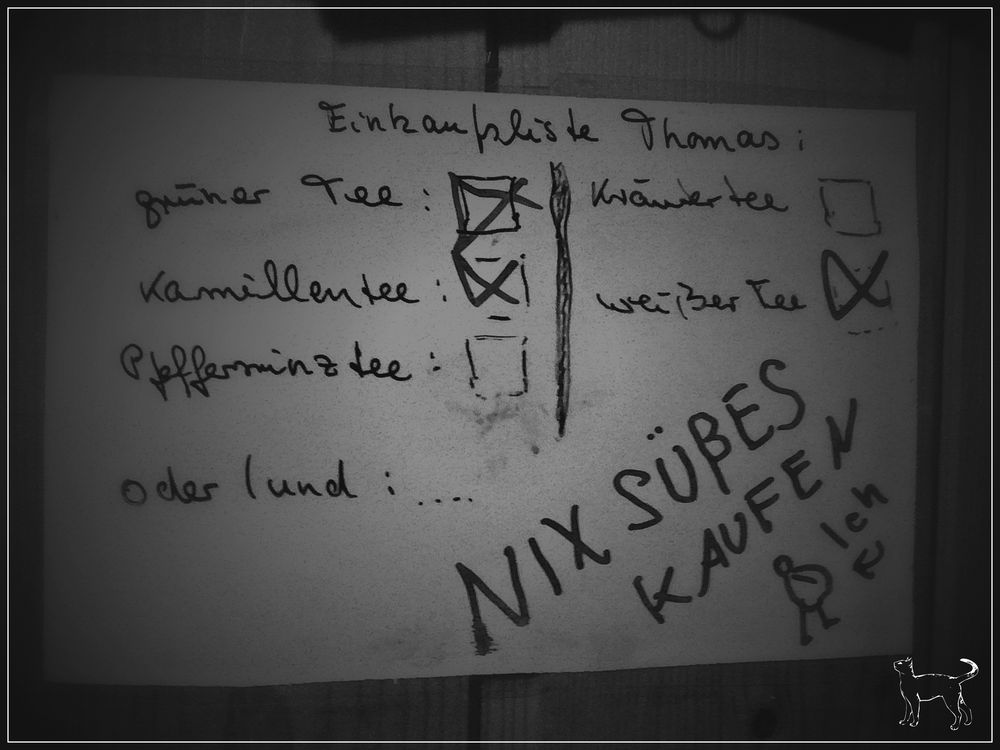 Einkaufsliste Thomas:
grüner Tee:
Kamillentee:
Pfefferminztee:
Kräutertee
weißer Tee
oder / und : ....
NIX SÜßES
KAUFEN
Ich